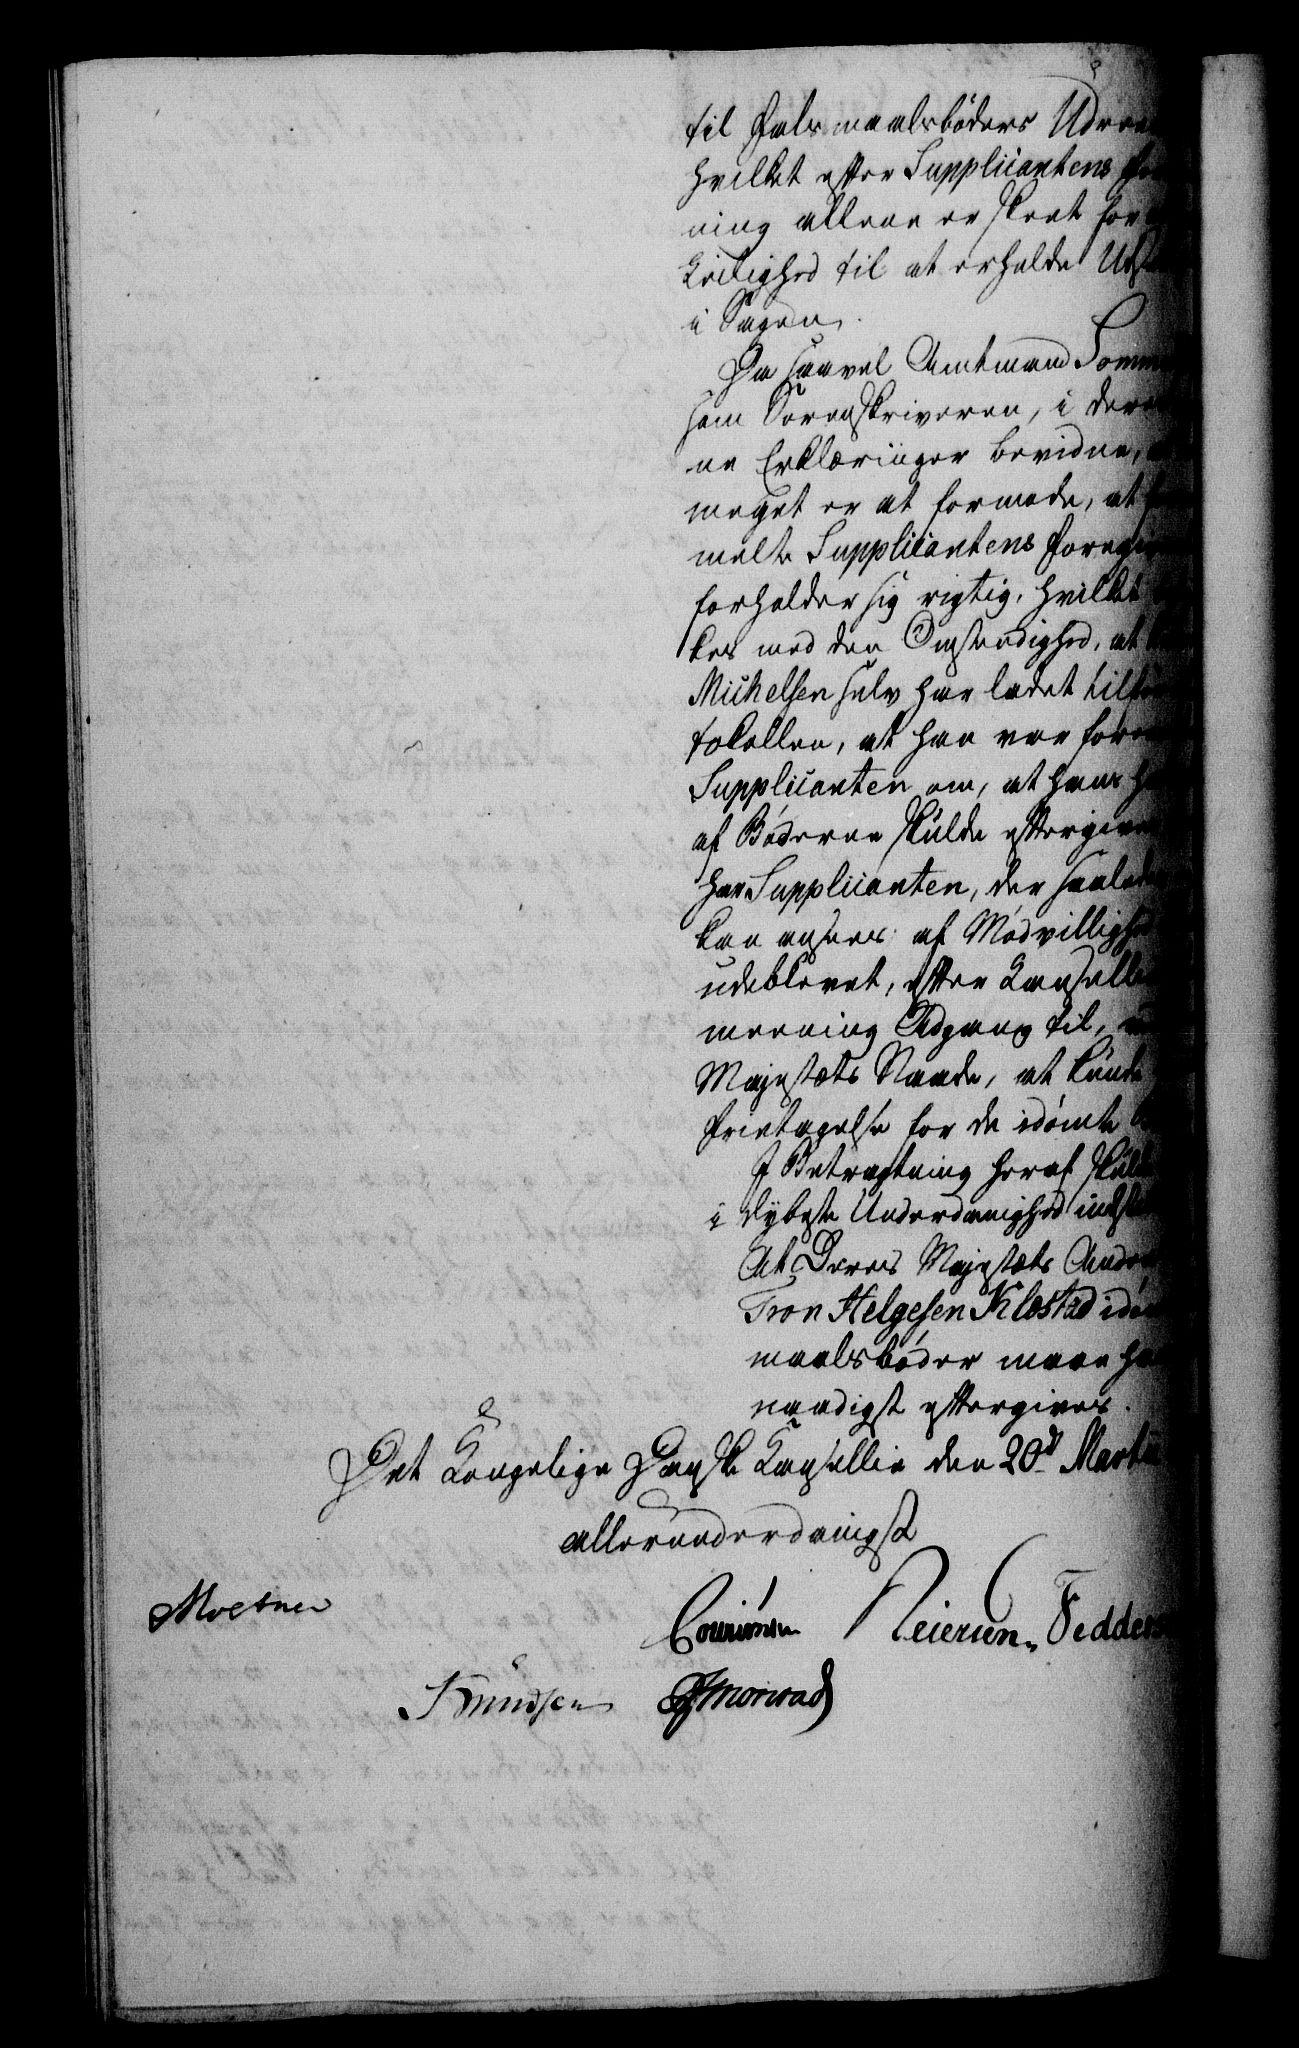 til Falsmaalsbøders Udree
hvilket efter Supplicantens For
ning allene er skeet for
kiedighed til at erholde Udsæ
i Sagen.
Da saavel Amtmand Somme
som Sorenskriveren, i dere
ne Erklæringer bevidne, at
meget er at formode, at
melte Supplicantens Foregive
forholder sig rigtig, hvilket
kes med den Omstendighed, at
Michelsen selv har ladet tilfør
tokollen, at han var foren
Supplicanten om, at hans H
af Bøderne skulde eftergives
har Supplicanten, der saalede
kan ansees af Modvillighed
udeblevet, efter Kanselliets
meening Adgang til, ved
Majestæts Naade, at kunde
Fritagelse for de idømte B
I Betragtning heraf skulde
i dybeste Underdanighed indstil
At Deres Majestæts Ander
Tron Helgesen Klestad idøm
maalsbøder maae ham
naadigst eftergives.
Det Kongelige Danske Kansellie den 20de Martii
allerunderdanigst
Moesner
Cold Reiersen. Fedders
Knudsen Monrad